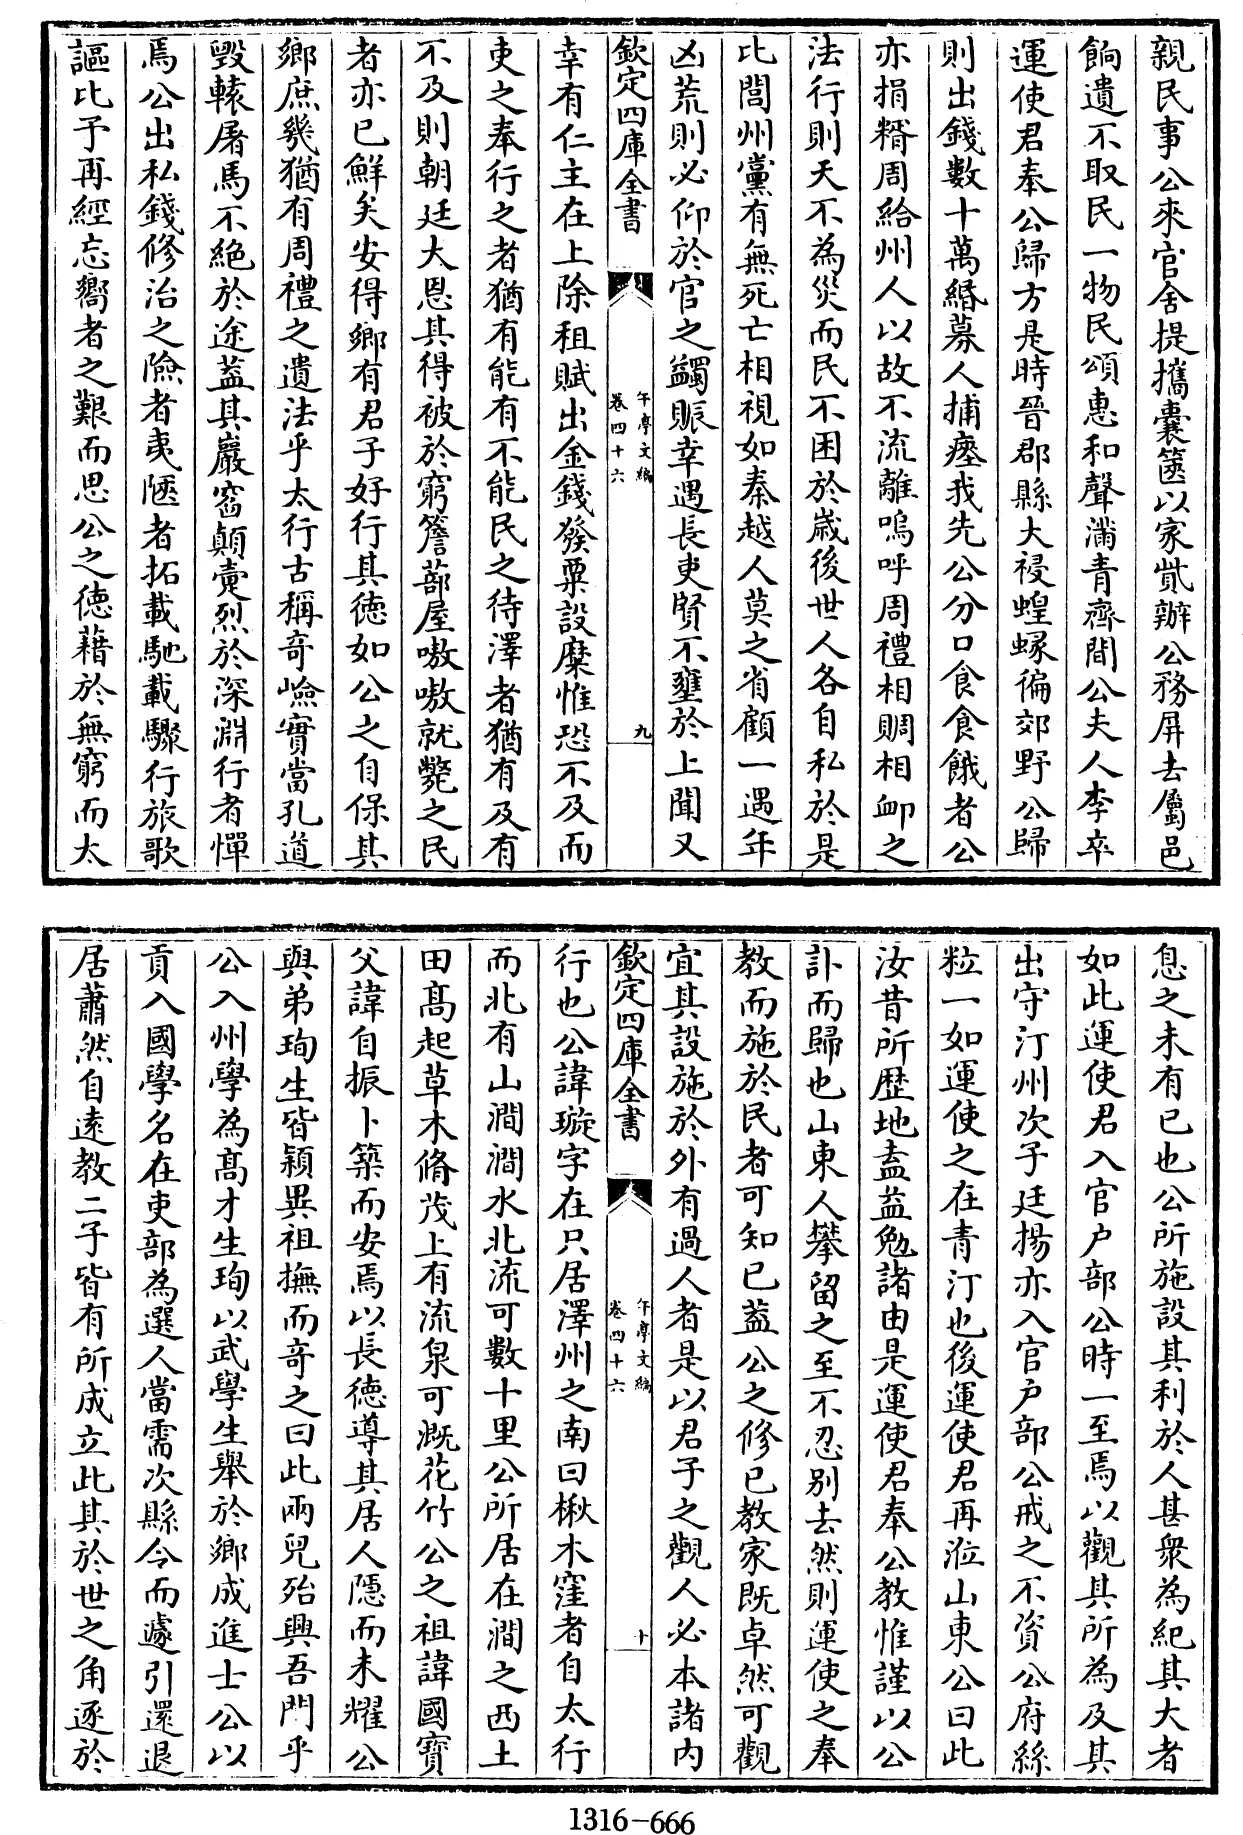 親民事公來官舍提攜囊篋以家貲辦公務屏去屬邑
餉遺不取民一物民頌惠和聲滿青齊間公夫人李卒
運使君奉公歸方是時晉郡縣大祲蝗蝝徧郊野公歸
則出錢數十萬緡募人捕瘞我先公分口食食餓者公
亦捐糈周給州人以故不流離嗚呼周禮相賙相卹之
法行則天不為災而民不困於歲後世人各自私於是
比閭州黨有無死亡相視如秦越人莫之省顧一遇年
凶荒則必仰於官之蠲賑幸遇長吏賢不壅於上聞又
欽定四庫全書
午亭文編
卷四十六
九
幸有仁主在上除租賦出金錢發粟設糜惟恐不及而
吏之奉行之者猶有能有不能民之待澤者猶有及有
不及則朝廷大恩其得被於窮簷蔀屋嗷嗷就斃之民
者亦已鮮矣安得鄉有君子好行其德如公之自保其
鄉庶幾猶有周禮之遺法乎太行古稱奇嶮實當孔道
毀轅屠馬不絕於途蓋其巖窞顛疐烈於深淵行者憚
焉公出私錢修治之險者夷陿者拓載馳載驟行旅歌
謳比予再經忘嚮者之艱而思公之德藉於無窮而太
息之未有已也公所施設其利於人甚衆為紀其大者
如此運使君入官户部公時一至焉以觀其所為及其
出守汀州次子廷揚亦入官户部公戒之不資公府絲
粒一如運使之在青汀也後運使君再涖山東公曰此
汝昔所歷地盍益勉諸由是運使君奉公教惟謹以公
訃而歸也山東人攀留之至不忍別去然則運使之奉
教而施於民者可知已蓋公之修已教家既卓然可觀
宜其設施於外有過人者是以君子之觀人必本諸内
欽定四庫全書
午亭文編
卷四十六
十
行也公諱璇字在只居澤州之南曰楸木窪者自太行
而北有山澗澗水北流可數十里公所居在澗之西土
田高起草木脩茂上有流泉可溉花竹公之祖諱國寳
父諱自振卜築而安焉以長德導其居人隱而未耀公
與弟珣生皆穎異祖撫而奇之曰此兩兒殆興吾門乎
公入州學為髙才生珣以武學生舉於鄉成進士公以
貢入國學名在吏部為選人當需次縣令而遽引還退
居蕭然自遠教二子皆有所成立此其於世之角逐於
1316-666